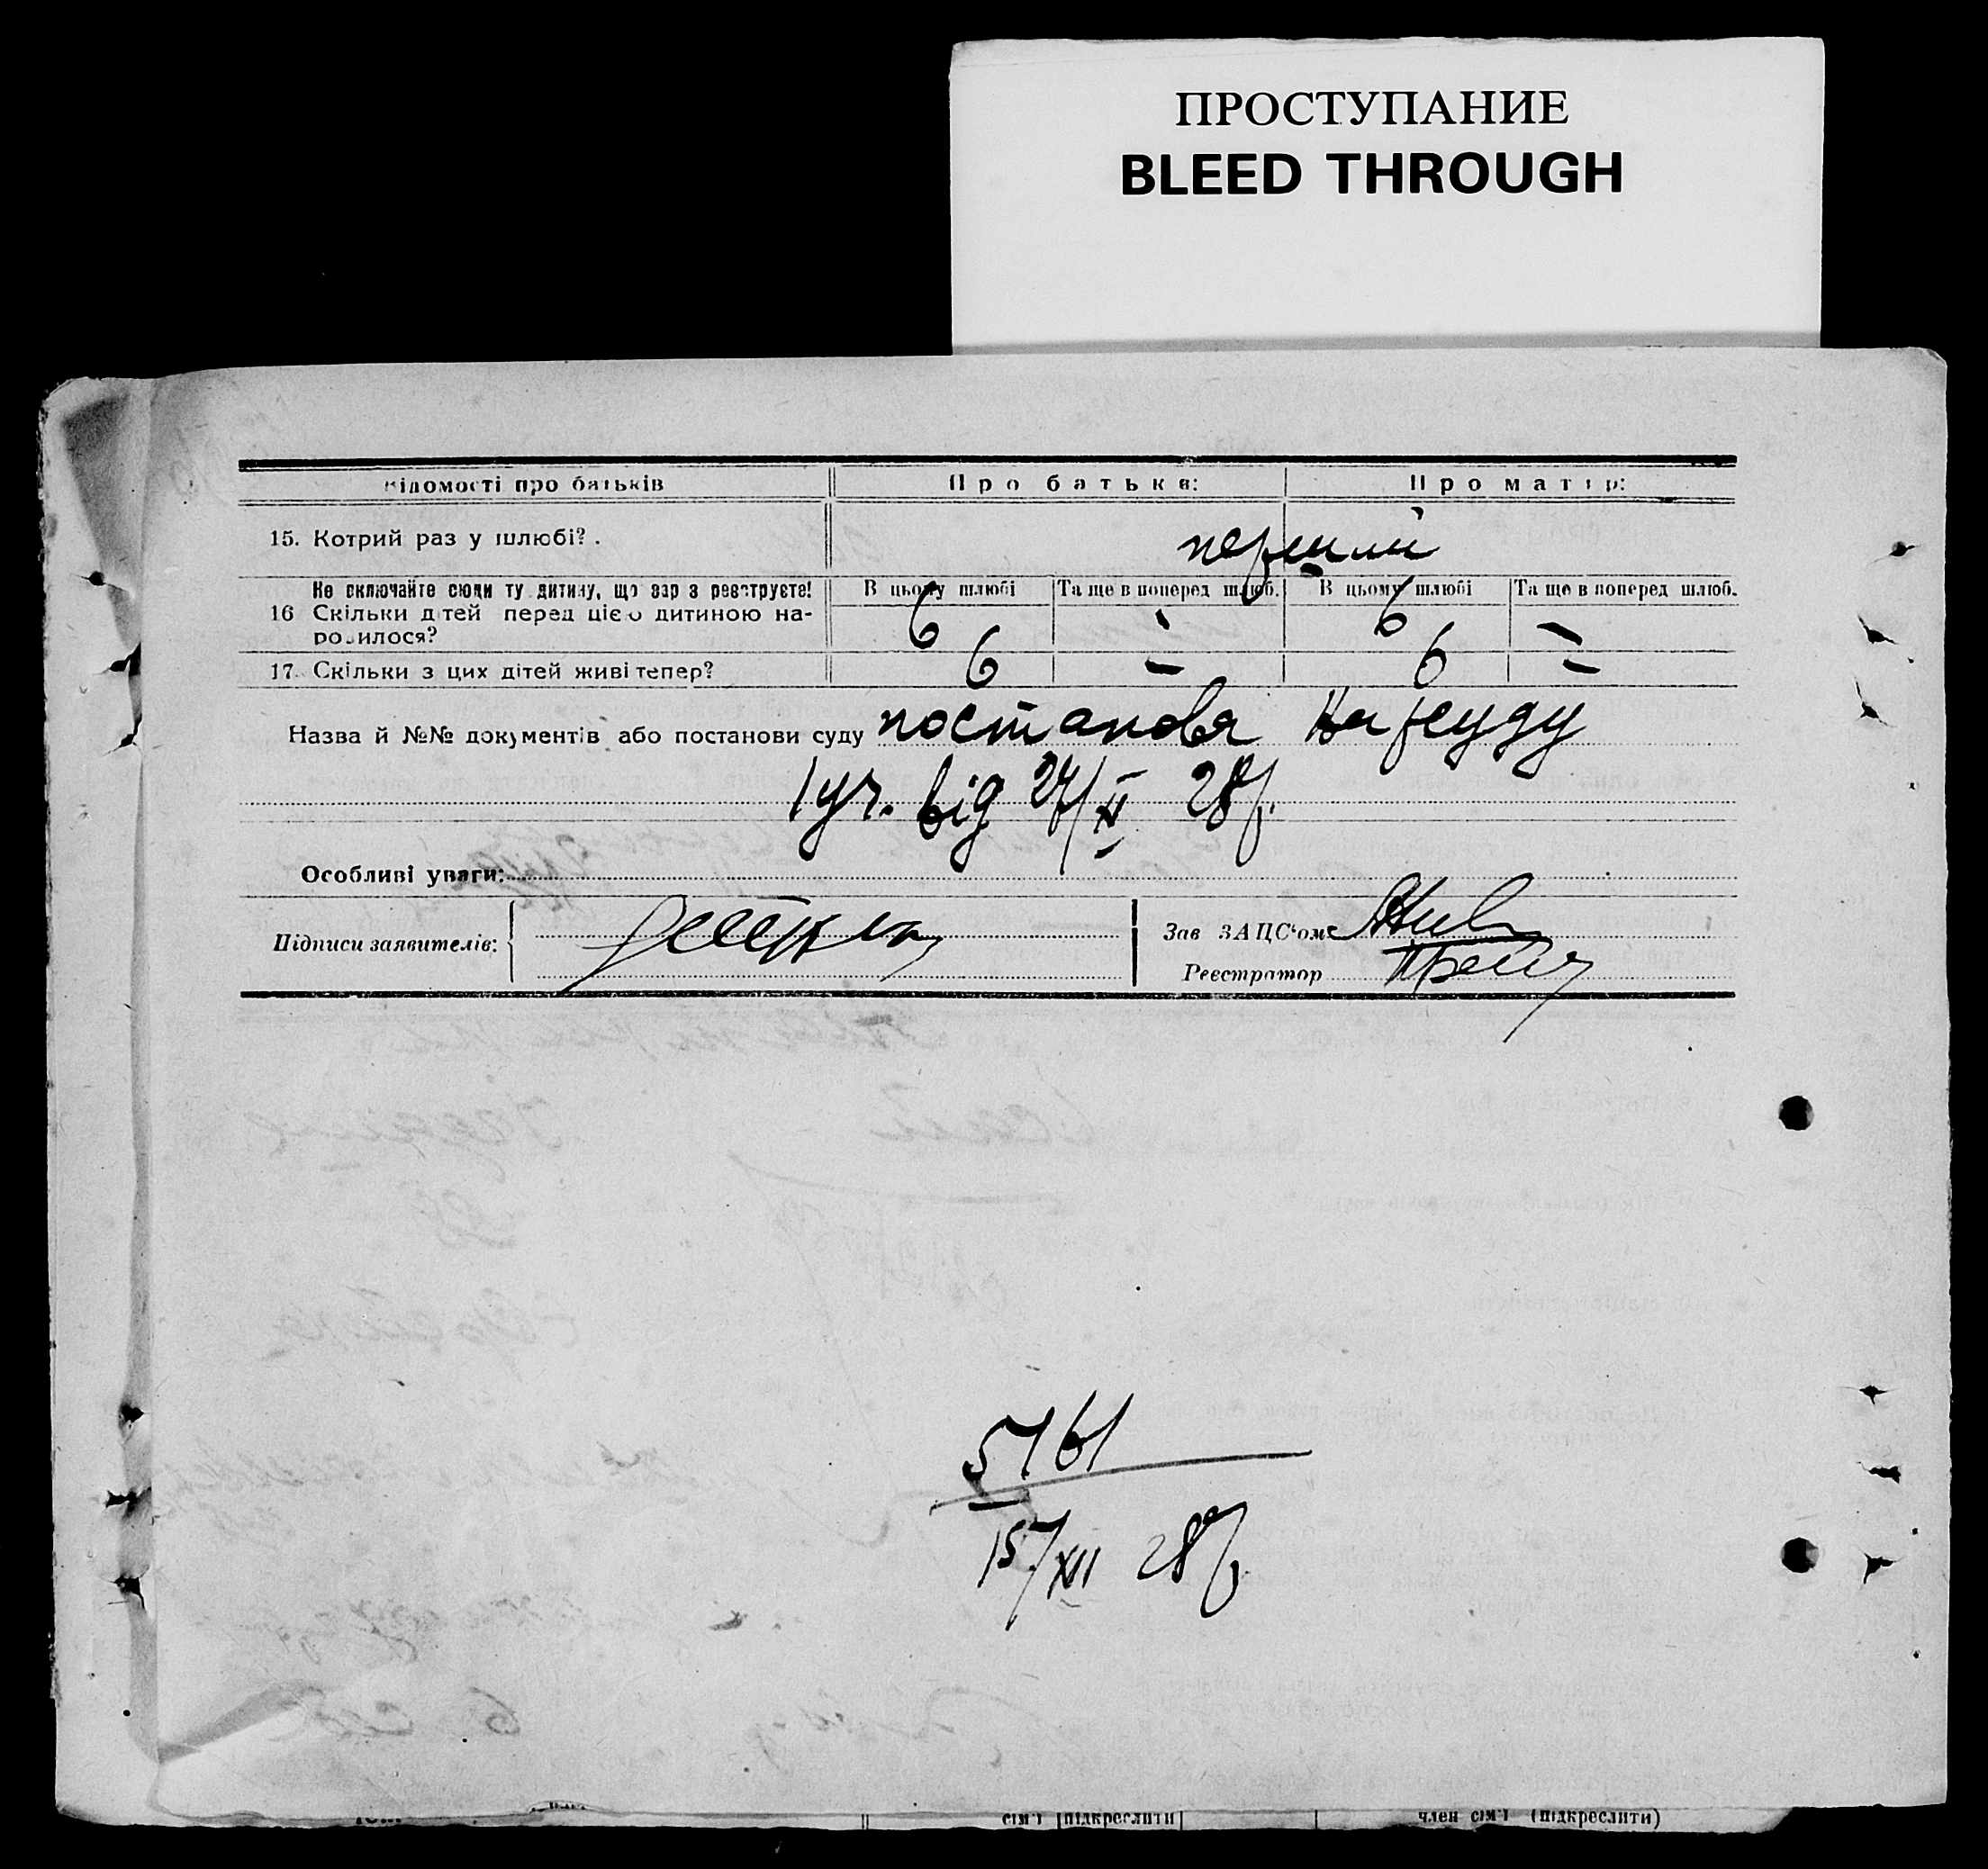 ПРОСТУПАНИЕ
BLEED THROUGH
відомості про батьків Про батька: Про матір:
15. Котрий раз у шлюбі?. перший
Не включайте сюди ту дитину, що зараз реєструєте! В цьому шлюбі Та ще в поперед шлюб. В цьому шлюбі Та ще в поперед шлюб.
16 Скільки дітей перед цією дитиною на- 6 - 6 -
родилося?
17. Скільки з цих дітей живі тепер? 6 - 6 -
Назва й №№ документів або постанови суду постанова Нарсуду
1 уч. від 27/XI 28р.
Особливі уваги:
Підписи заявителів: Зав ЗАЦС‘ом
Реєстратор
5761
15/XII 28р.
сім'ї (підкреслити член сім'ї (підкреслити)